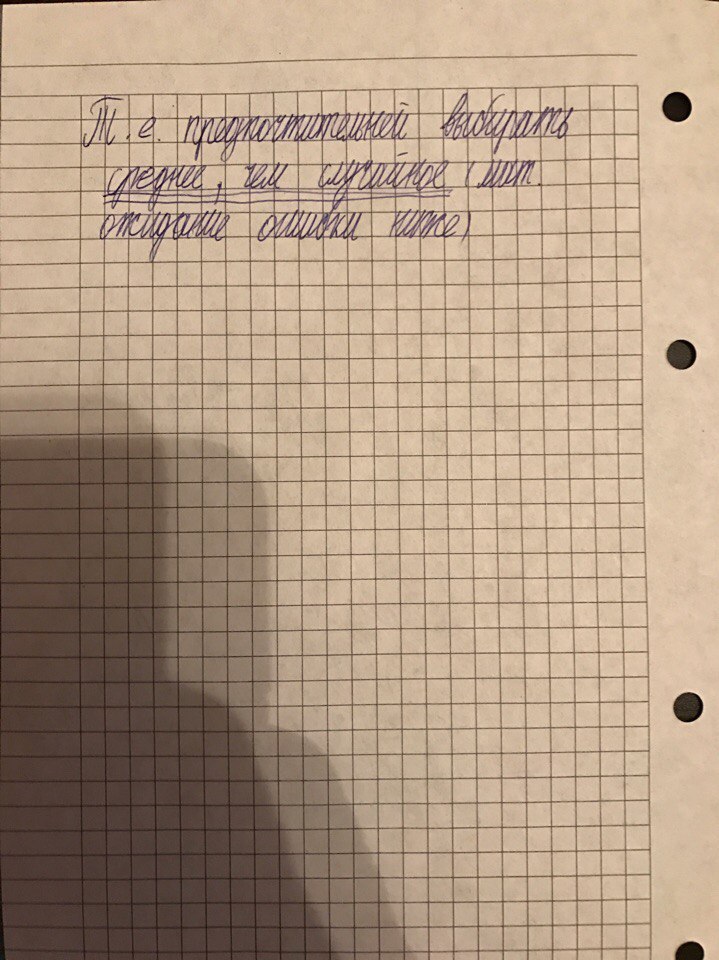 Т.е. предпочтительней выбирать
среднее, чем случайное (мат.
ожидание ошибки ниже)